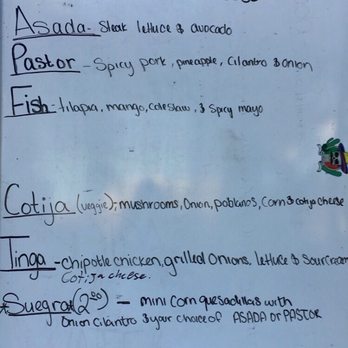 Asada - Steak lettuce & avocado
Pastor - Spicy pork, pineapple, Cilantro & onion
Fish - tilapia, mango, coleslaw, & Spicy mayo
Cotija (veggie); mushrooms, Onion, poblanos, Corn & cotija cheese
Tinga - chipotle chicken, grilled onions, lettuce & Sour cream
Cotija cheese.
*Suegra* (2.00) - mini corn quesadillas with
Onion Cilantro & your choice of ASADA or PASTOR